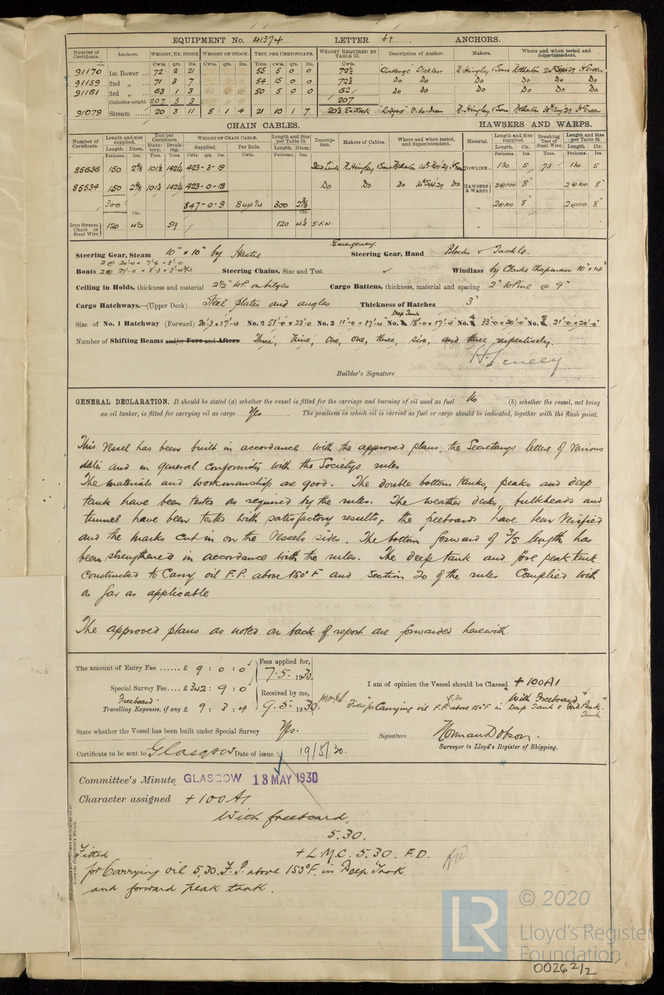 EQUIPMENT No. 41374 LETTER bt ANCHORS.
Number of Certificate. Anchors. WEIGHT, EX. STOCK WEIGHT OF STOCK. TEST, PER CERTIFICATE. WEIGHT REQUIRED BY TABLE 31. Description of Anchor. Makers. Where and when tested and Superintendent.
Cwts. qrs. lbs. Cwts. qrs. lbs. Tons. cwts. qrs. lbs. Cwts.
91170 1st Bower 72 2 21 55 5 0 0 79½ Stockless
91159 2nd „ 71 3 7 54 15 0 0 72½ Do Do Do Do
91161 3rd „ 63 1 3 50 5 0 0 62 Do Do Do Do
Collective weight 207 3 3 207
91079 Stream 20 3 11 5 1 4 21 10 1 7 20½ Ex Stock
CHAIN CABLES. HAWSERS AND WARPS.
Number of Certificate. Length and size supplied. Test per Certificate. WEIGHT OF CHAIN CABLE. Length and Size per Table 31. Description. Makers of Cables. Where and when tested, and Superintendent. Material Length and Size supplied. Breaking Test of Steel Wire. Length and Size per Table 31.
Fathoms. Supplied. Per Rule. Fathoms. Diam.
85636 150 423-3-19 Stud Link TOWLINE 130 5 73 130 5
85534 150 423-0-18 Do Do Do HAWSERS & WARPS 2@100 8" 2@100 8"
300 847-0-9 300 2@100 8" 2@100 8"
Iron Stream Chain or Steel Wire 120 4½ 59 120 4½
Emergency
Steering Gear, Steam 10" × 10" by Hastie Steering Gear, Hand Blocks & Tackle.
Boats Steering Chains, Size and Test ✓ Windlass by Clarke Chapman 10" × 14"
Ceiling in Holds, thickness and material 2½" W.P. on bilges Cargo Battens, thickness, material and spacing 2" W Pine @ 9"
Cargo Hatchways.—(Upper Deck) Steel plates and angles Thickness of Hatches 3"
Deep Tank
Size of No. 1 Hatchway (Forward) 20'-3 × 17'-4 No. 2 51'-0 × 23'-0 No. 3 11'-0" × 17'-4 No. 4 18'-0 × 17'-4 No. 5 33'-0 × 20'-0" No. 6 21'-0" × 20'-0"
Number of Shifting Beams and/or Fore and Afters Three, Nine, one, one, three, six, and three respectively.
Builder's Signature
GENERAL DECLARATION. It should be stated (a) whether the vessel is fitted for the carriage and burning of oil used as fuel No (b) whether the vessel, not being
an oil tanker, is fitted for carrying oil as cargo Yes The positions in which oil is carried as fuel or cargo should be indicated, together with the flash point.
This Vessel has been built in accordance with the approved plans, the Secretarys letters of various
dates and in general conformity with the Societys rules
The materials and workmanship are good. The double bottom tanks, peaks and deep
tank have been tested as required by the rules. The weather decks, bulkheads and
tunnel have been tested with satisfactory results, the freeboards have been verified
and the marks cut in on the Vessels sides. The bottom forward of 3/5 length has
been strengthened in accordance with the rules. The deep tank and fore peak tank
constructed to carry oil F.P. above 150°F and section 20 of the rules complied with
as far as applicable
The approved plans as noted on back of report are forwarded herewith.
The amount of Entry Fee ...... £ 9 : 0 : 0
Special Survey Fee .... £ 342 : 9 : 0
Freeboard
Travelling Expenses, if any £ 9 : 3 : 4
Fees applied for, 7-5-1930
Received by me, 9.5.1930
I am of opinion the Vessel should be Classed + 100A1
"With Freeboard"
5.30
for Carrying oil F.P. above 150°F in Deep Tank & Fore Peak Tank
State whether the Vessel has been built under Special Survey Yes.
Signature Norman Dobson.
Surveyor to Lloyd's Register of Shipping.
Certificate to be sent to Glasgow Date of issue 19/5/30.
Committee's Minute GLASGOW 13 MAY 1930
Character assigned + 100 A1
With freeboard.
5.30.
Fitted + L.M.C. 5.30. F.D.
for Carrying oil 5.30 F.P. above 150°F. in Deep Tank
and forward peak tank.
LR
© 2020
Lloyd's Register
Foundation
0026 2/2